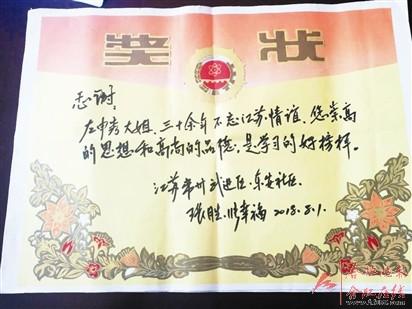 奖状
感谢:
左中秀大姐,三十余年不忘江苏情谊,您崇高
的思想和高尚的品德,是学习的好榜样。
江苏常州武进区·东安社区
张胜 幸福 2018.8.1.
合江在线